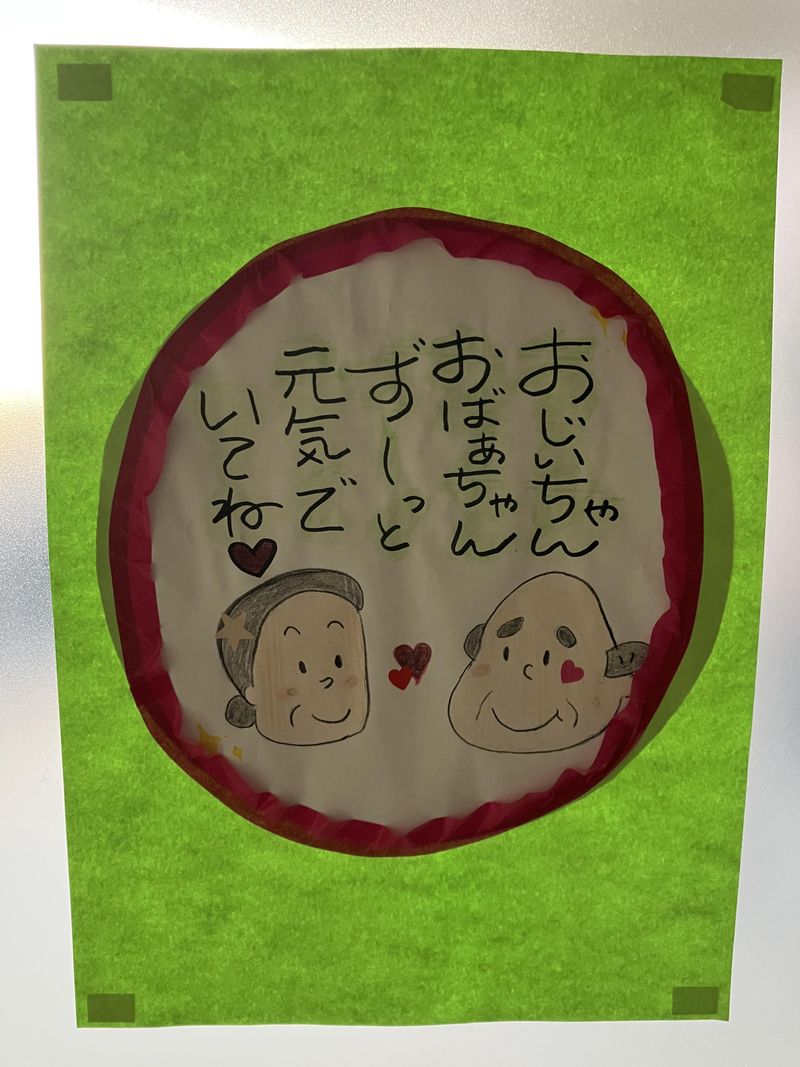 おじいちゃん
おばぁちゃん
ずーっと
元気で
いてね♥